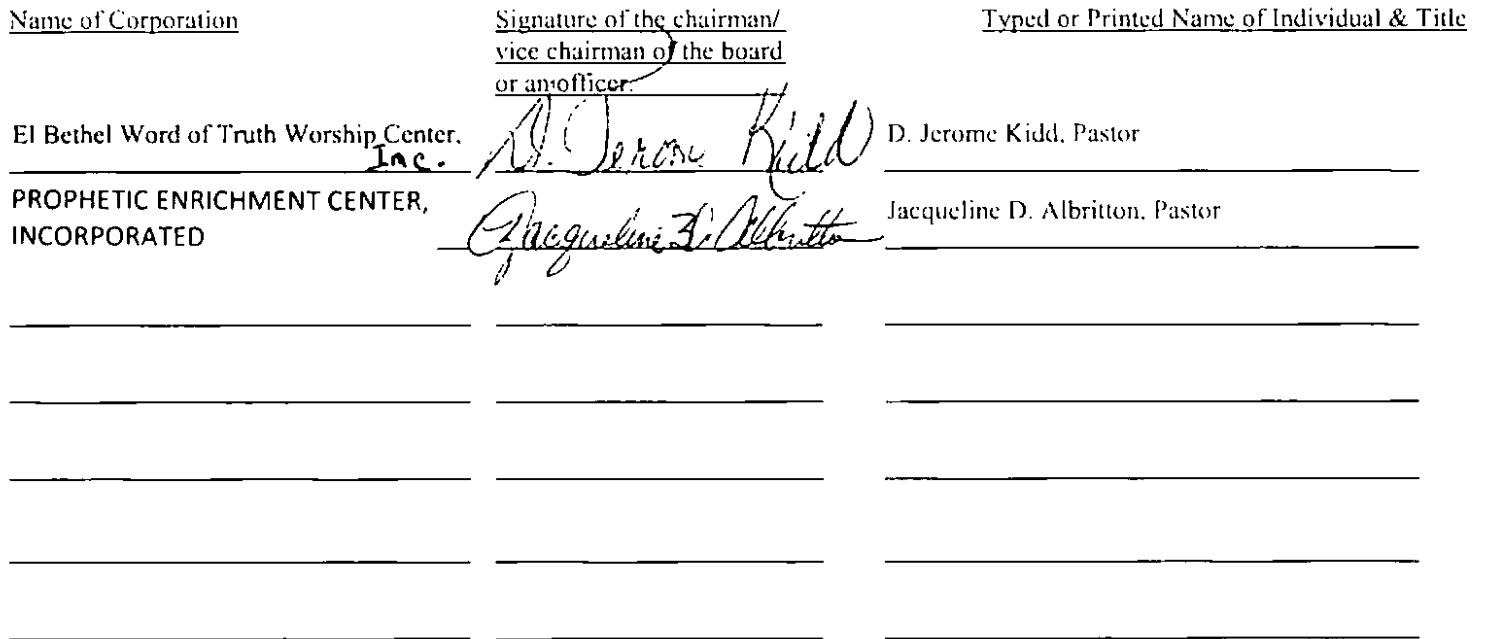 Name of Corporation
Signature of the chairman/
vice chairman of the board
or an officer.
Typed or Printed Name of Individual & Title
El Bethel Word of Truth Worship Center,
Inc.
D. Jerome Kidd
D. Jerome Kidd, Pastor
PROPHETIC ENRICHMENT CENTER,
INCORPORATED
Jacqueline D. Albritton
Jacqueline D. Albritton, Pastor